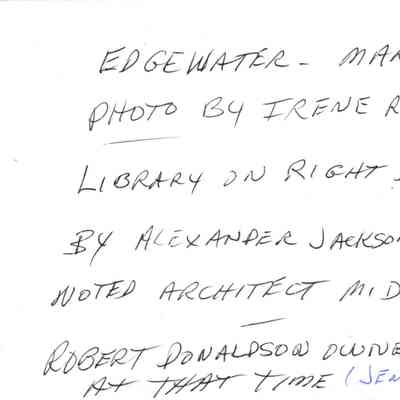 EDGEWATER - MAR
PHOTO BY IRENE R
LIBRARY ON RIGHT
BY ALEXANDER JACKSO
NOTED ARCHITECT MID
ROBERT DONALDSON OWNE
AT THAT TIME (JEN